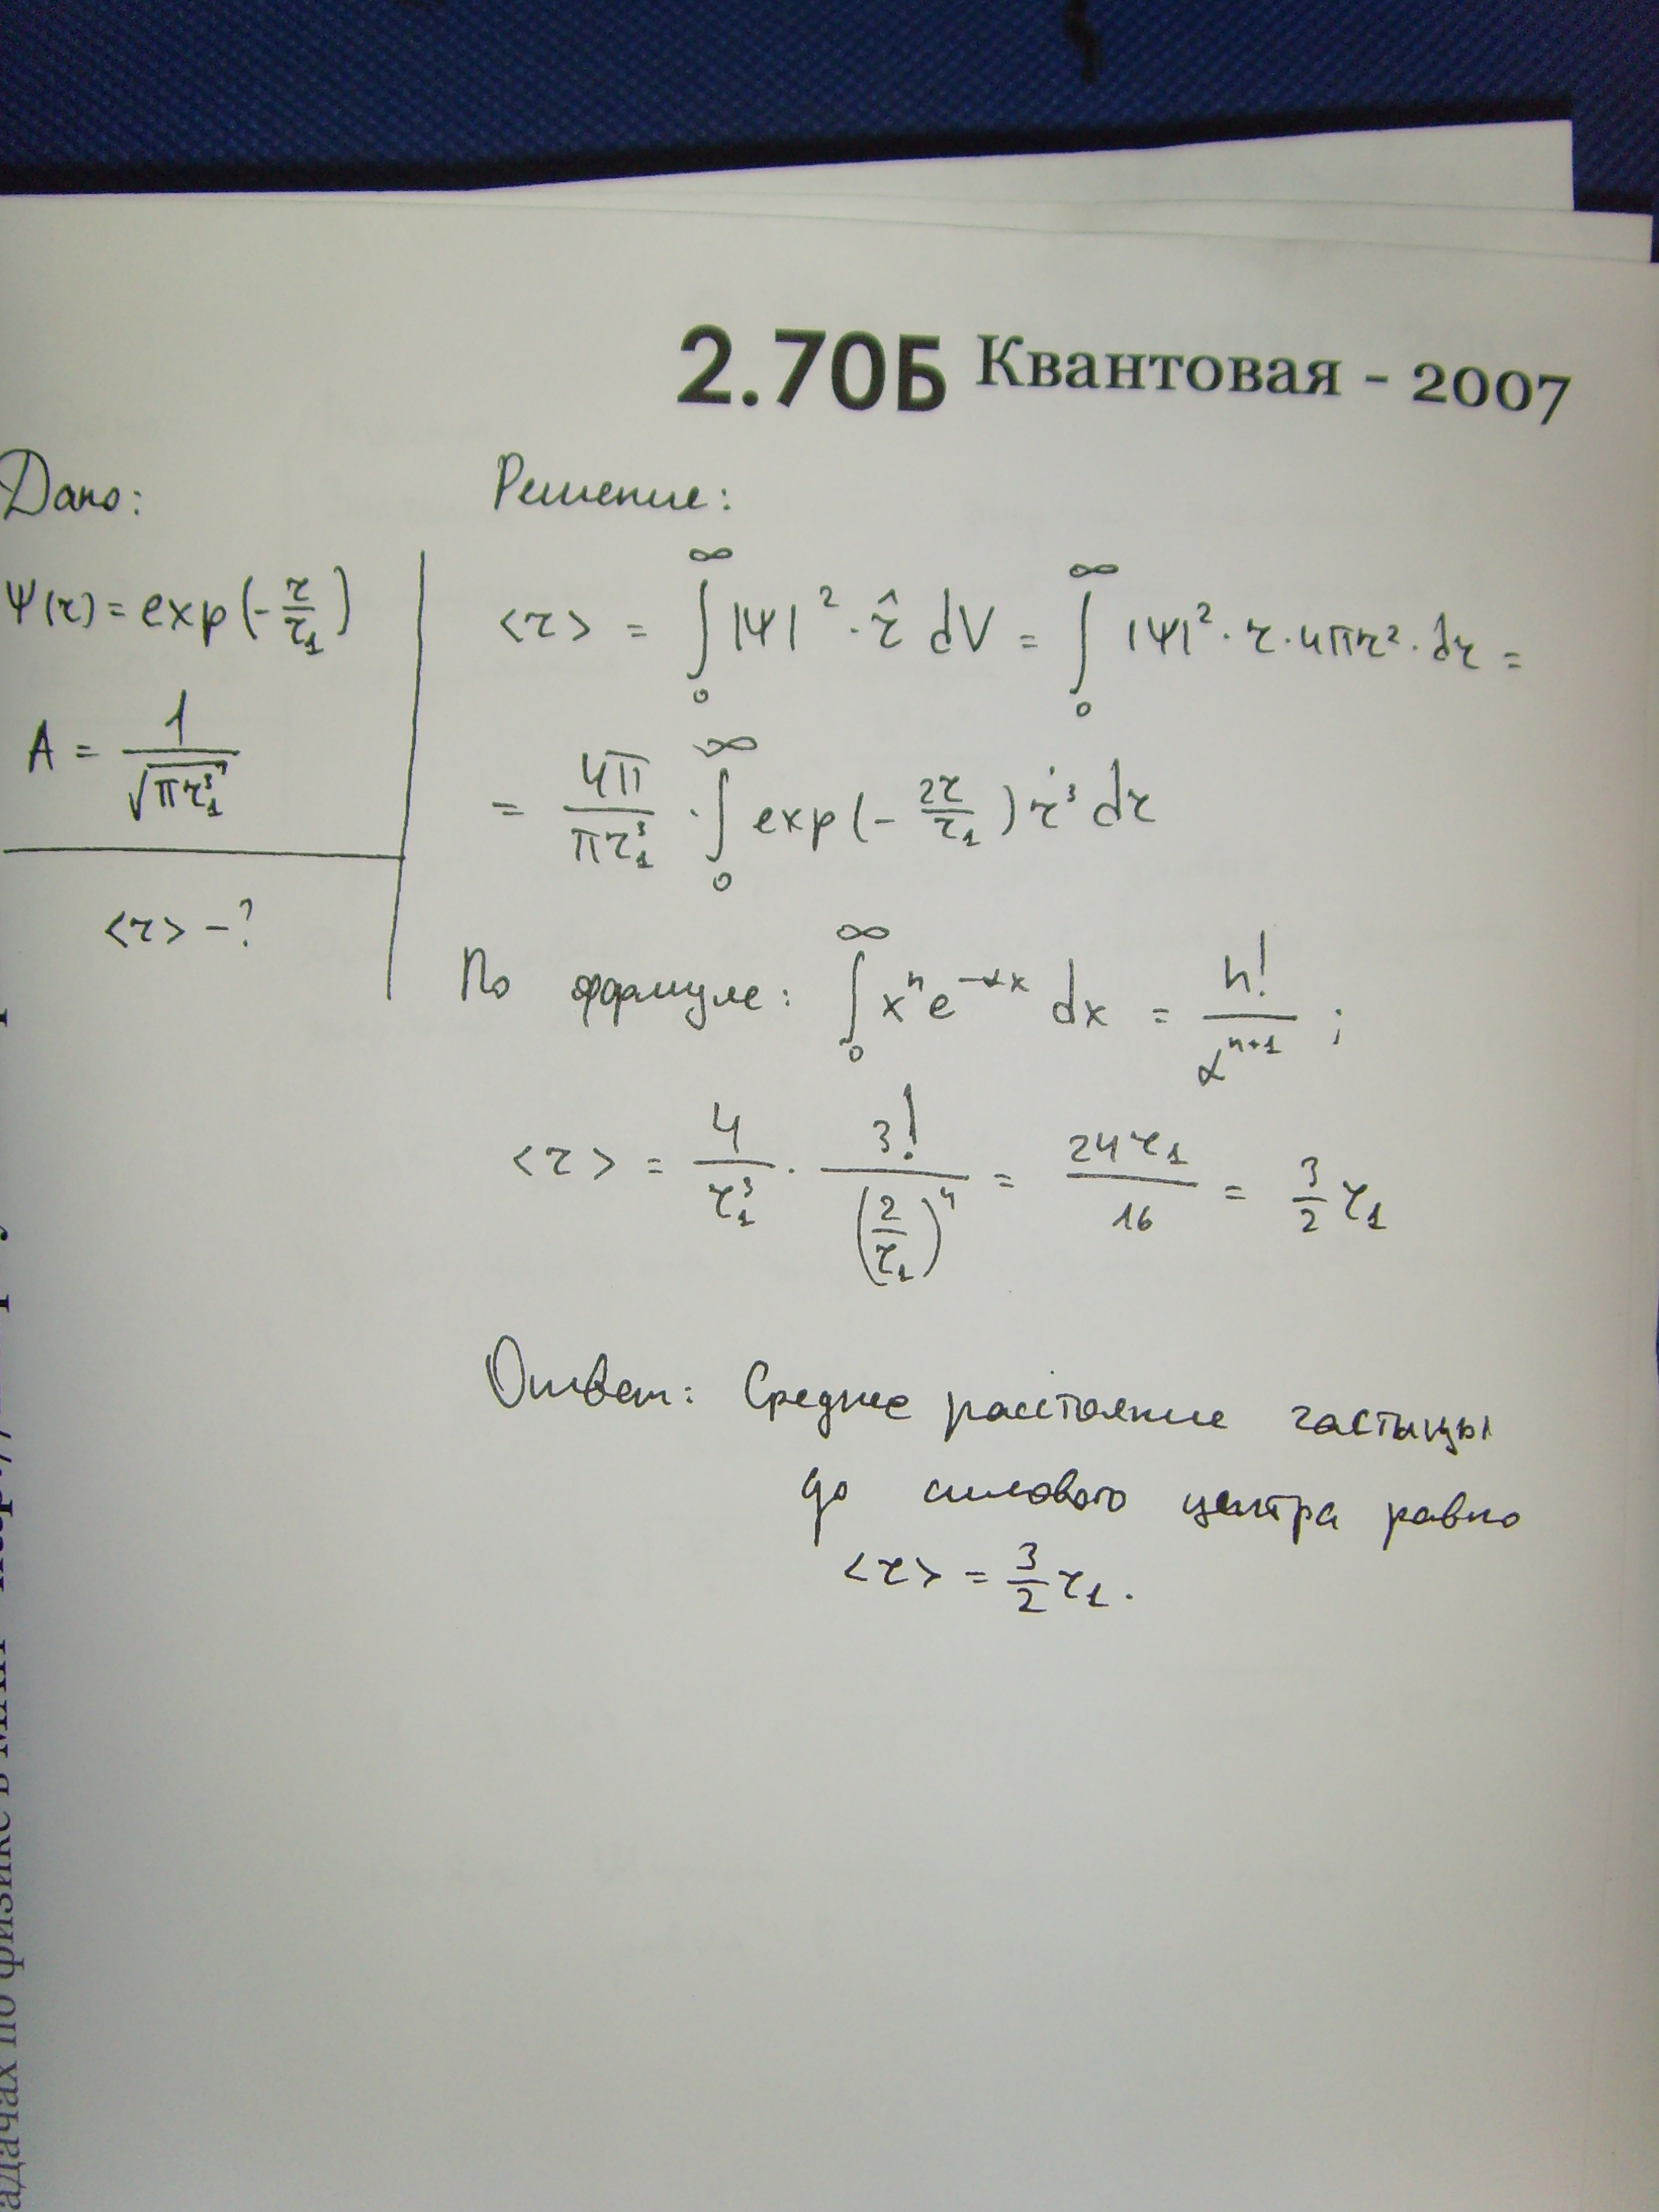 2.70Б Квантовая - 2007
Дано:
Ψ(r) = exp(-r/r₁)
A = 1/√(πr₁³)
<r> - ?
Решение:
<r> = ∫₀^∞ |Ψ|² · r̂ dV = ∫₀^∞ |Ψ|² · r · 4πr² · dr =
= 4π/(πr₁³) · ∫₀^∞ exp(-2r/r₁) r³ dr
По формуле: ∫₀^∞ xⁿ e^(-αx) dx = n!/α^(n+1) ;
<r> = 4/r₁³ · 3!/(2/r₁)⁴ = 24r₁/16 = 3/2 r₁
Ответ: Среднее расстояние частицы
до силового центра равно
<r> = 3/2 r₁.
адачах по физике в МАИ